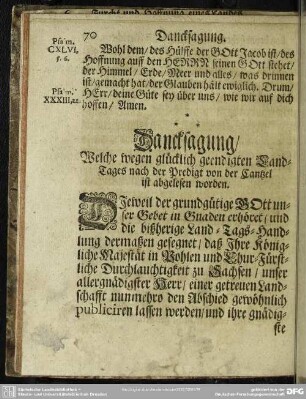 70 Dancksagung.
Psa'm.
CXLVI,
5. 6.
Wohl dem/ des Hülffe der GOtt Jacob ist/ des
Hoffnung auff den HERRN seinen GOtt stehet/
der Himmel/ Erde/ Meer und alles/ was drinnen
ist/ gemacht hat/ der Glauben hält ewiglich. Drum/
Psa'm.
XXXIII, 22.
HErr/ deine Güte sey über uns/ wie wir auf dich
hoffen/ Amen.
Dancksagung/
Welche wegen glücklich geendigten Land-
Tages nach der Predigt von der Cantzel
ist abgelesen worden.
DIeweil der grundgütige GOtt un-
ser Gebet in Gnaden erhöret/ und
die bißherige Land-Tags-Hand-
lung dermaßen gesegnet/ daß Ihre König-
liche Majestät in Pohlen und Chur-Fürst-
liche Durchlauchtigkeit zu Sachsen/ unser
allergnädigster Herr/ einer getreuen Land-
schafft nunmehro den Abschied gewöhnlich
publiciren lassen werden/ und ihre gnädig-
ste